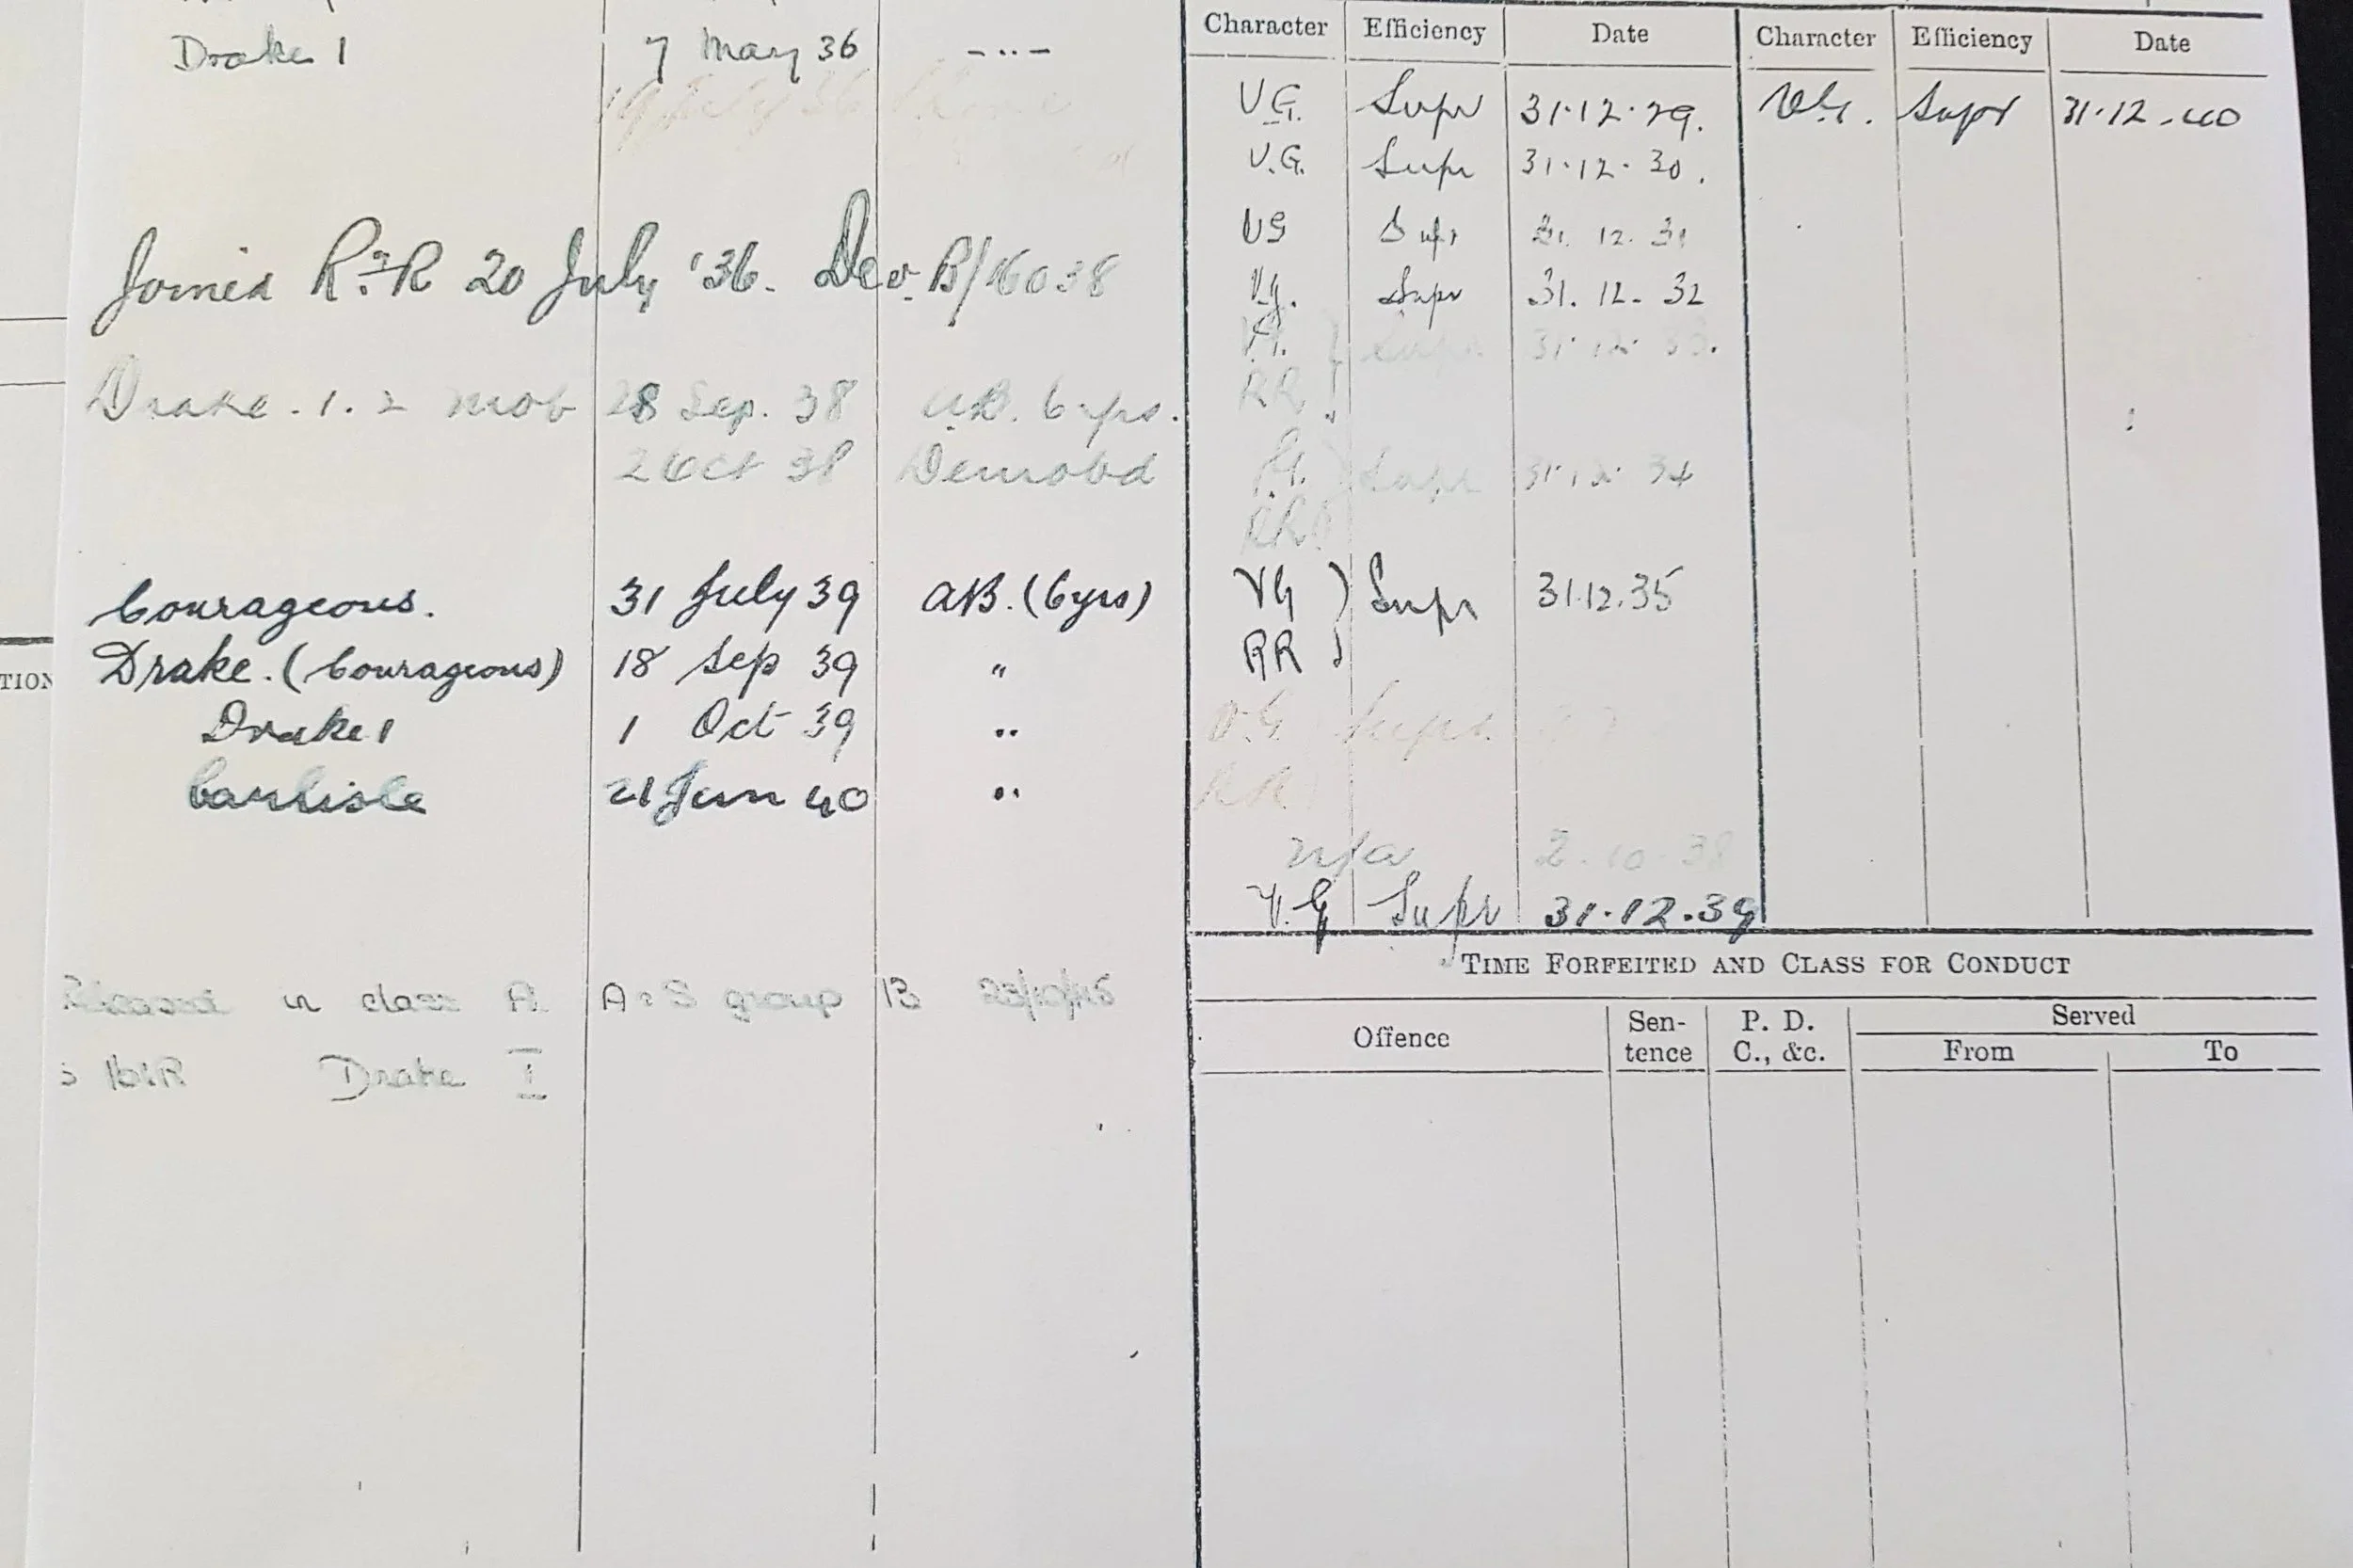 Drake 1 7 May 36 -··-
19 July 36 Shore
Joined R.F.R 20 July '36. Dev. B/16038
Drake. 1. 2 mob 28 Sep. 38 A.B. 6 yrs.
2 Oct 38 Demobd
Courageous. 31 July 39 AB. (6 yrs)
Drake. (Courageous) 18 Sep 39 "
Drake 1 1 Oct 39 "
Carlisle 21 Jun 40 "
Released in class A. A & S group 13 23/10/45
Drake I
TION
Character Efficiency Date Character Efficiency Date
V.G. Supr 31·12·29. V.G. Supr 31·12·40
V.G. Supr 31·12·30.
VG Supr 31. 12. 31
V.G. Supr 31. 12. 32
V.G. ) Supr 31·12·33.
RR )
V.G. ) Supr 31·12·34
RR )
VG ) Supr 31.12.35
RR )
V.G Supr
RR
n/a 2·10·38
V.G Supr 31·12·39
TIME FORFEITED AND CLASS FOR CONDUCT
Offence Sen-tence P. D. C., &c. Served
From To